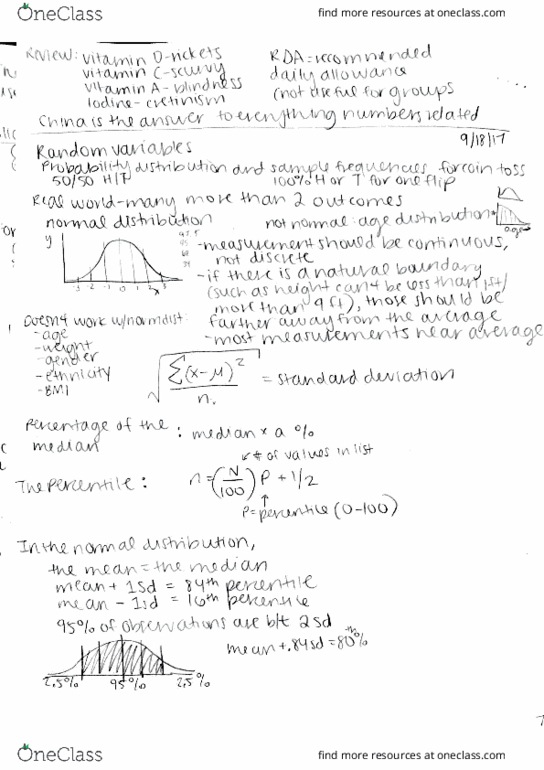 OneClass
find more resources at oneclass.com
Review: vitamin D-rickets
vitamin C-scurvy
vitamin A-blindness
Iodine-cretinism
RDA=recommended
daily allowance
(not useful for groups
China is the answer to everything numbers related
9/18/17
Random variables
Probability distribution and sample frequencies for coin toss
50/50 H/T
100% H or T for one flip
Real world-many more than 2 outcomes
normal distribution
not normal: age distribution
y
-3 -2 -1 0 1 2 3
x
-measurement should be continuous,
not discrete
-if there is a natural boundary
(such as height can't be less than 1ft/
more than 9ft), those should be
farther away from the average
-most measurements near average
Doesn't work w/norm dist:
-age
-weight
-gender
-ethnicity
-BMI
√(Σ(x-μ)²/n) = standard deviation
Percentage of the median : median x a %
↙ # of values in list
The Percentile : n=(N/100) P + 1/2
↑
P=percentile (0-100)
In the normal distribution,
the mean = the median
mean + 1sd = 84th percentile
mean - 1sd = 16th percentile
95% of observations are b/t 2sd
mean+.84sd=80th%
2.5% 95% 2.5%
OneClass
find more resources at oneclass.com